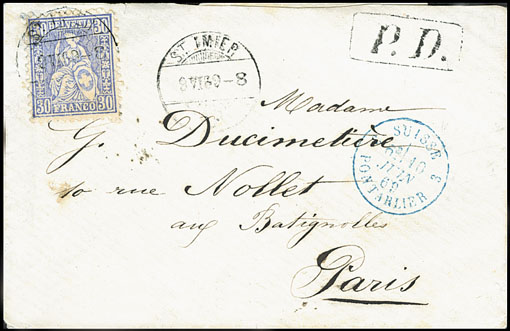 30 HELVETIA 30
30 FRANCO 30
ST. IMIER
9 VI 69 - 8
P. D.
Madame
G. Ducimetière
10 rue Nollet
aux Batignolles
Paris
SUISSE
10 JUIN 69
PONTARLIER 3